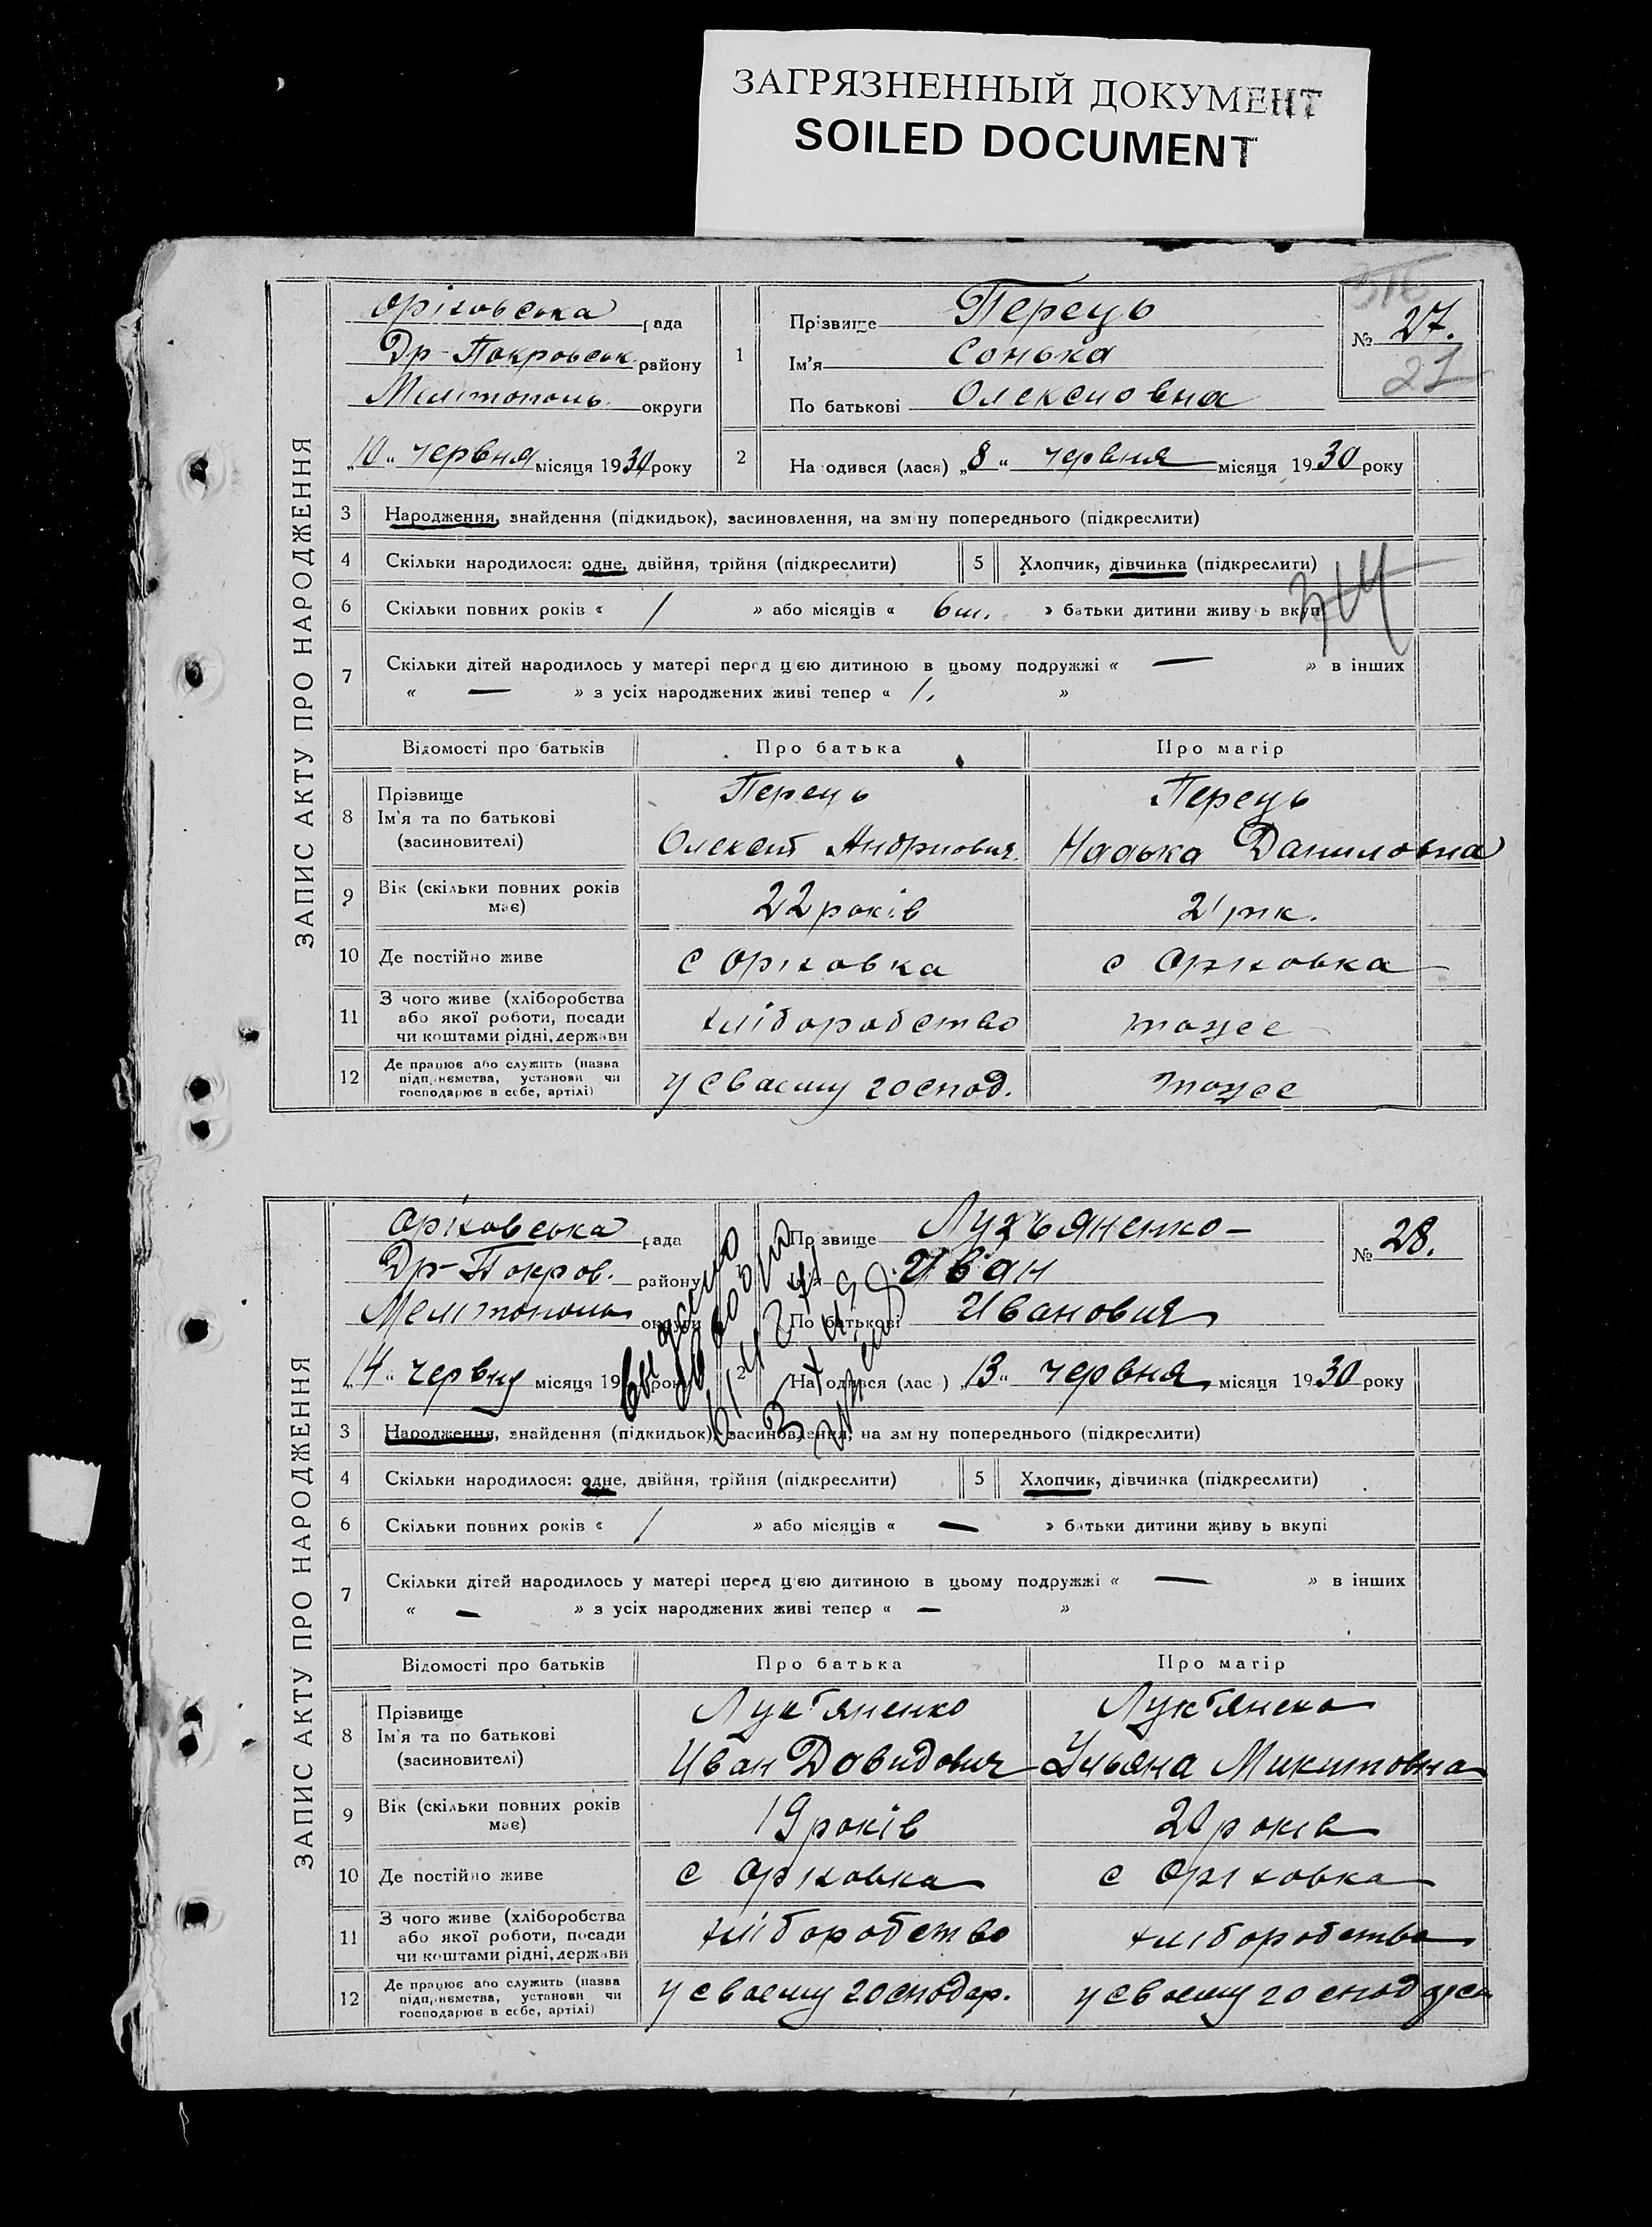 ЗАГРЯЗНЕННЫЙ ДОКУМЕНТ
SOILED DOCUMENT
ЗАПИС АКТУ ПРО НАРОДЖЕННЯ
Оріховська рада
Др-Покровськ. району
Мелітополь. округи
„10" червня місяця 1930 року
1 Прізвище Перець
Ім'я Сонька
По батькові Олексиовна
№ 27.
21
2 На одився (лася) „8" червня місяця 1930 року
3 Народження, знайдення (підкидьок), засиновлення, на зм ну попереднього (підкреслити)
4 Скільки народилося: одне, двійня, трійня (підкреслити) 5 Хлопчик, дівчинка (підкреслити)
6 Скільки повних років « / » або місяців « 6 м. » батьки дитини живу ь вкупі
7 Скільки дітей народилось у матері перед цією дитиною в цьому подружжі « — » в інших
« — » з усіх народжених живі тепер « 1, »
Відомості про батьків Про батька Про матір
8 Прізвище Перець Перець
Ім'я та по батькові
(засновителі) Олексий Андриович. Надька Даниловна
9 Вік (скільки повних років
має) 22 років 21 рік.
10 Де постійно живе с Оріховка с Оріховка
11 З чого живе (хліборобства
або якої роботи, посади
чи коштами рідні, держави хліборобство тоже
12 Де працює або служить (назва
підприємства, установи чи
господарює в себе, артілі) у своєму господ. тоже
ЗАПИС АКТУ ПРО НАРОДЖЕННЯ
Оріховська рада
Др-Покров. району
Мелітополь округи
„14" червня місяця 19 року
Пр звище Лукъяненко-
Иван
По батькові Иванович
№ 28.
2 На одився (лас ) „13" червня місяця 1930 року
3 Народження, знайдення (підкидьок), засиновлення, на зм ну попереднього (підкреслити)
4 Скільки народилося: одне, двійня, трійня (підкреслити) 5 Хлопчик, дівчинка (підкреслити)
6 Скільки повних років « / » або місяців « — » батьки дитини живу ь вкупі
7 Скільки дітей народилось у матері перед цією дитиною в цьому подружжі « — » в інших
« — » з усіх народжених живі тепер « — »
Відомості про батьків Про батька Про матір
8 Прізвище Лук'яненко Лук'яненко
Ім'я та по батькові
(засновителі) Иван Давидович Ульяна Микитовна
9 Вік (скільки повних років
має) 19 років 20 років
10 Де постійно живе с Оріховка с Оріховка
11 З чого живе (хліборобства
або якої роботи, посади
чи коштами рідні, держави хліборобство хліборобство
12 Де працює або служить (назва
підприємства, установи чи
господарює в себе, артілі) у своєму господар. у своєму господ